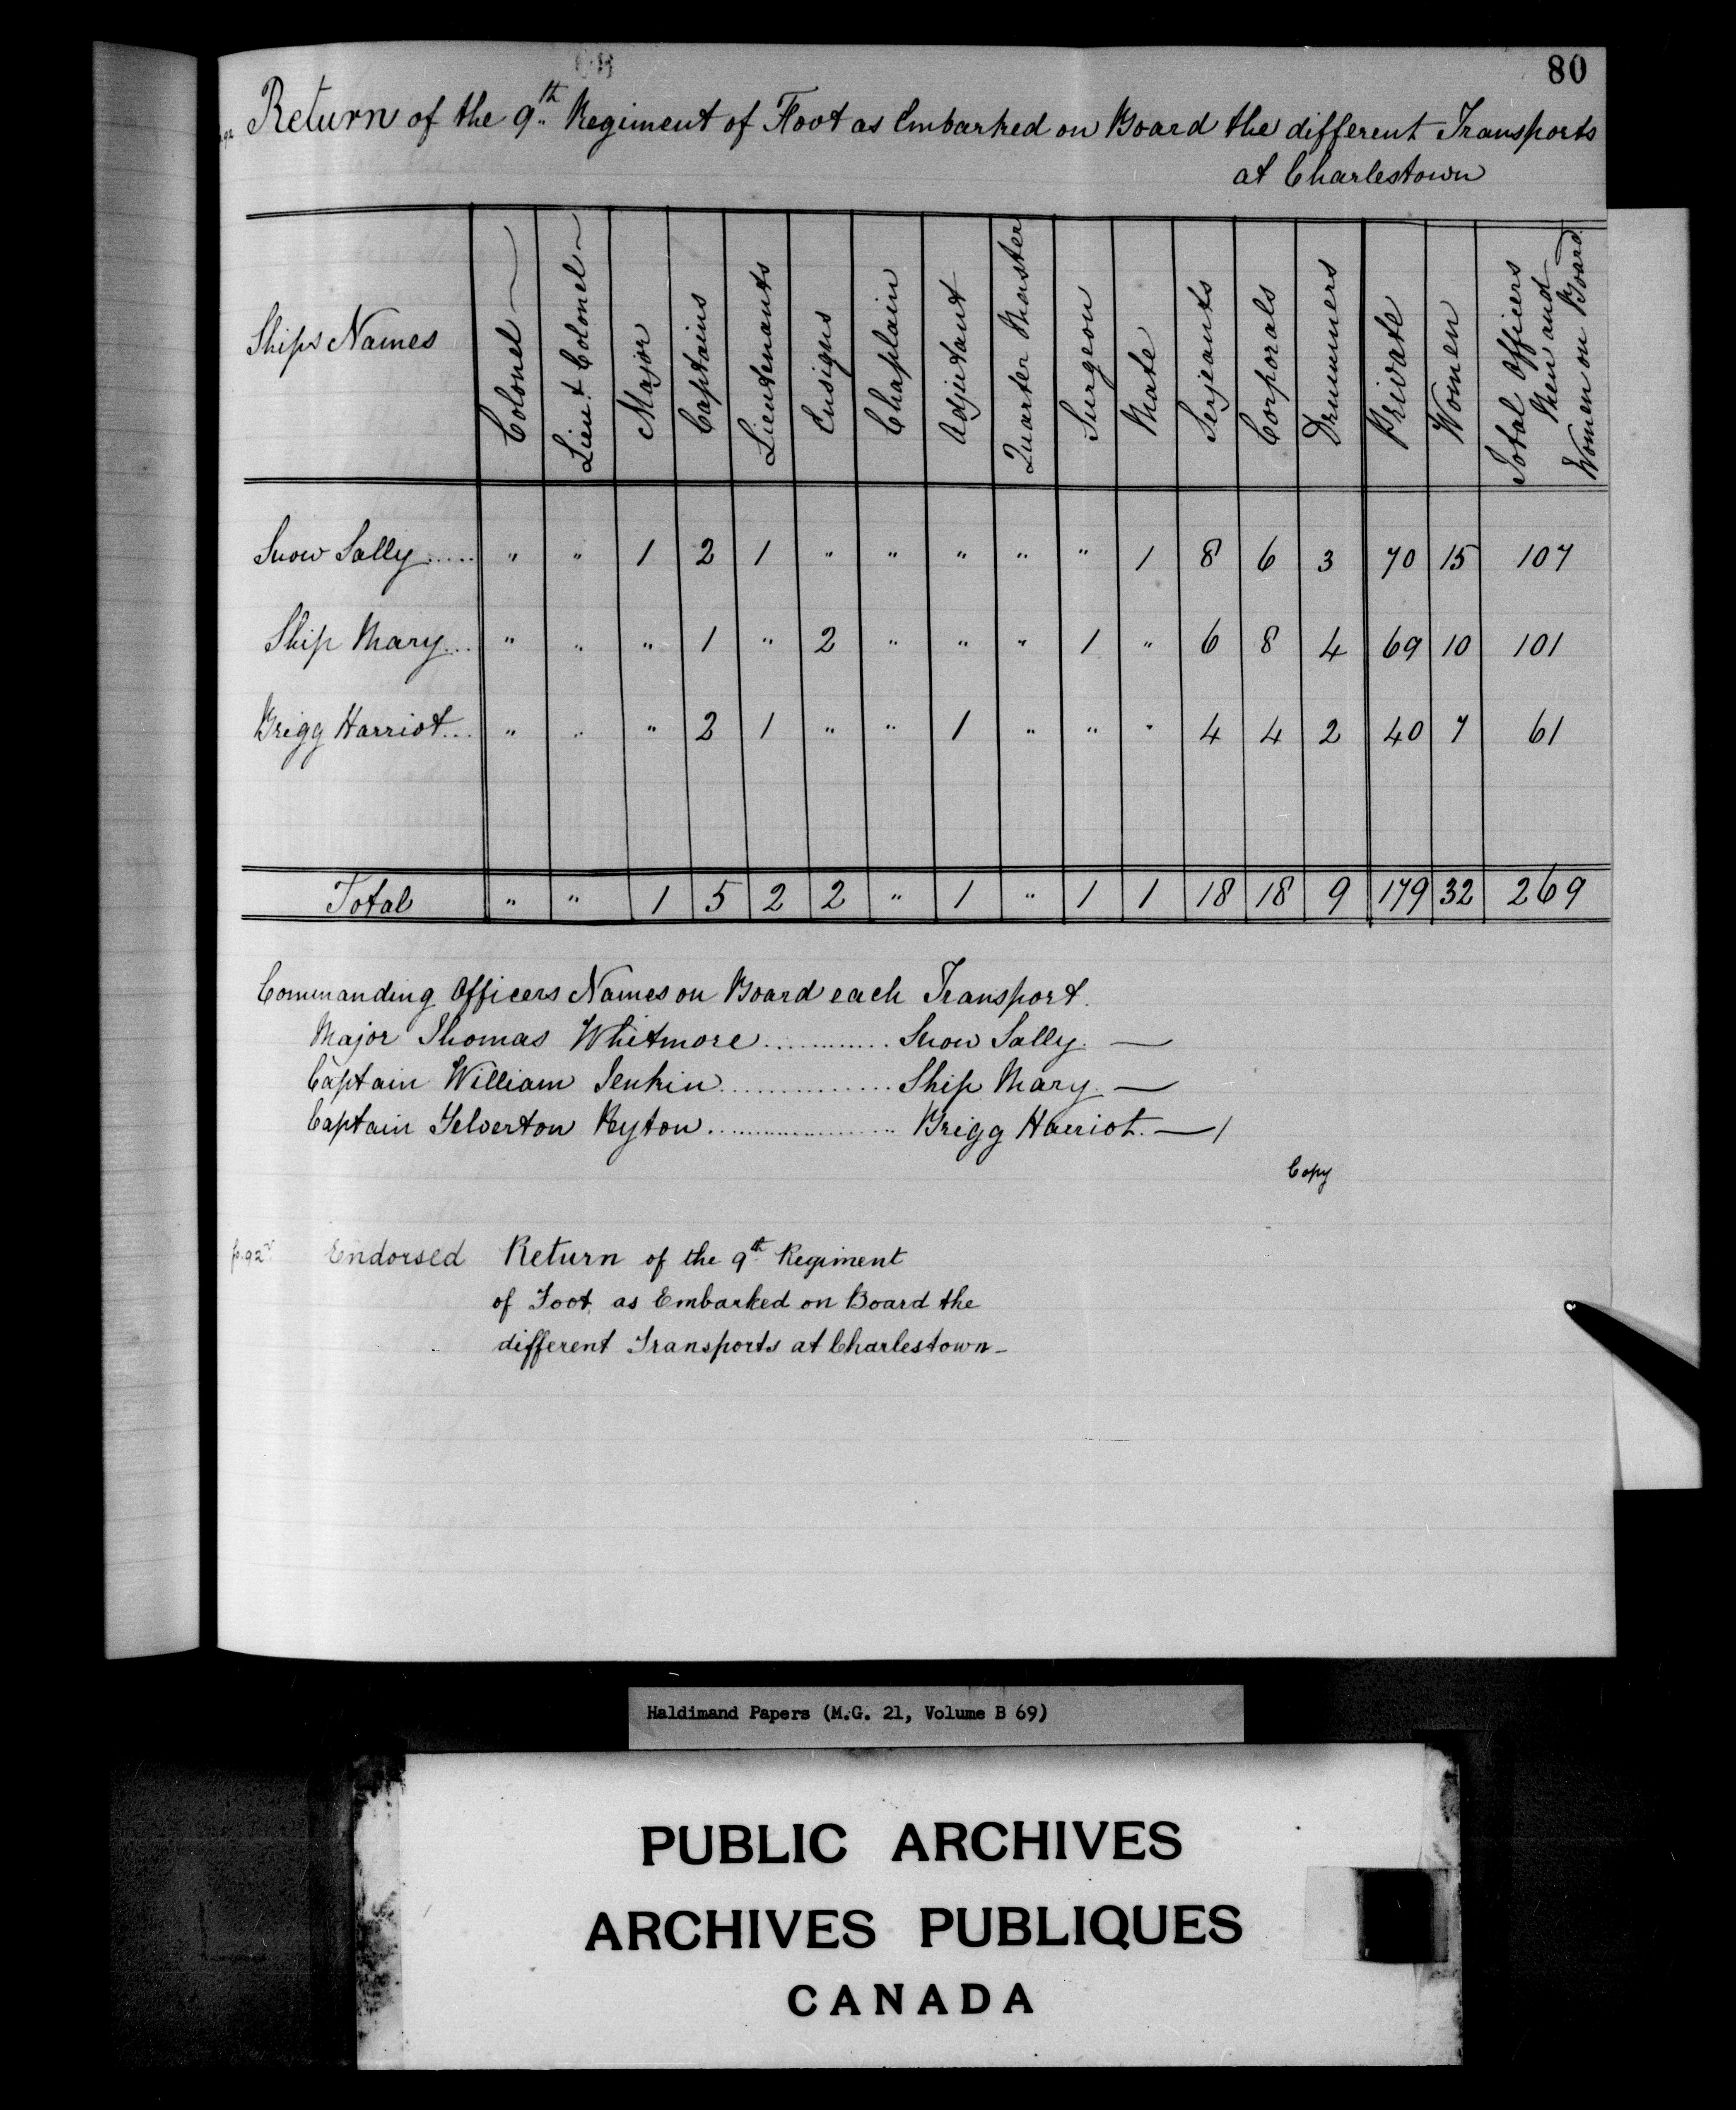 80
Return of the 9th Regiment of Foot as Embarked on Board the different Transports
at Charlestown
Ships Names | Colonel | Lieut Colonel | Major | Captains | Lieutenants | Ensigns | Chaplain | Adjutant | Quarter Master | Surgeon | Mate | Serjeants | Corporals | Drummers | Private | Women | Total Officers Men and Women on Board
Snow Sally..... | " | " | 1 | 2 | 1 | " | " | " | " | " | 1 | 8 | 6 | 3 | 70 | 15 | 107
Ship Mary... | " | " | " | 1 | " | 2 | " | " | " | 1 | " | 6 | 8 | 4 | 69 | 10 | 101
Brigg Harriot... | " | " | " | 2 | 1 | " | " | 1 | " | " | " | 4 | 4 | 2 | 40 | 7 | 61
Total | " | " | 1 | 5 | 2 | 2 | " | 1 | " | 1 | 1 | 18 | 18 | 9 | 179 | 32 | 269
Commanding Officers Names on Board each Transport.
Major Thomas Whitmore............. Snow Sally. —
Captain William Jenkin................ Ship Mary. —
Captain Yelverton Peyton..................... Brigg Harriot. —/
Copy
fo. 92v Endorsed Return of the 9th Regiment
of Foot, as Embarked on Board the
different Transports at Charlestown-
Haldimand Papers (M.G. 21, Volume B 69)
PUBLIC ARCHIVES
ARCHIVES PUBLIQUES
CANADA